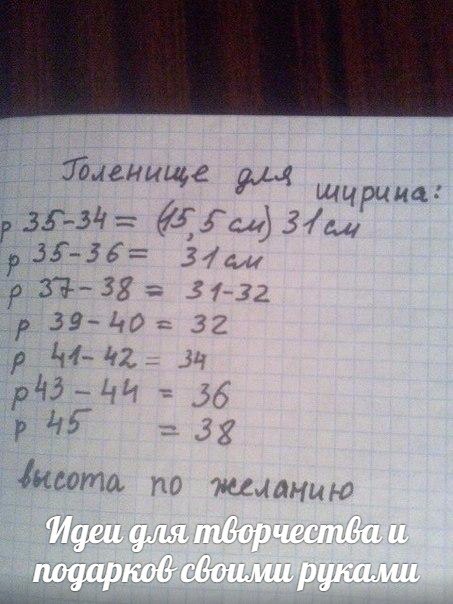 Голенище для ширина:
р 35-34 = (15,5 см) 31 см
р 35-36 = 31 см
р 37-38 = 31-32
р 39-40 = 32
р 41-42 = 34
р 43-44 = 36
р 45 = 38
высота по желанию
Идеи для творчества и
подарков своими руками